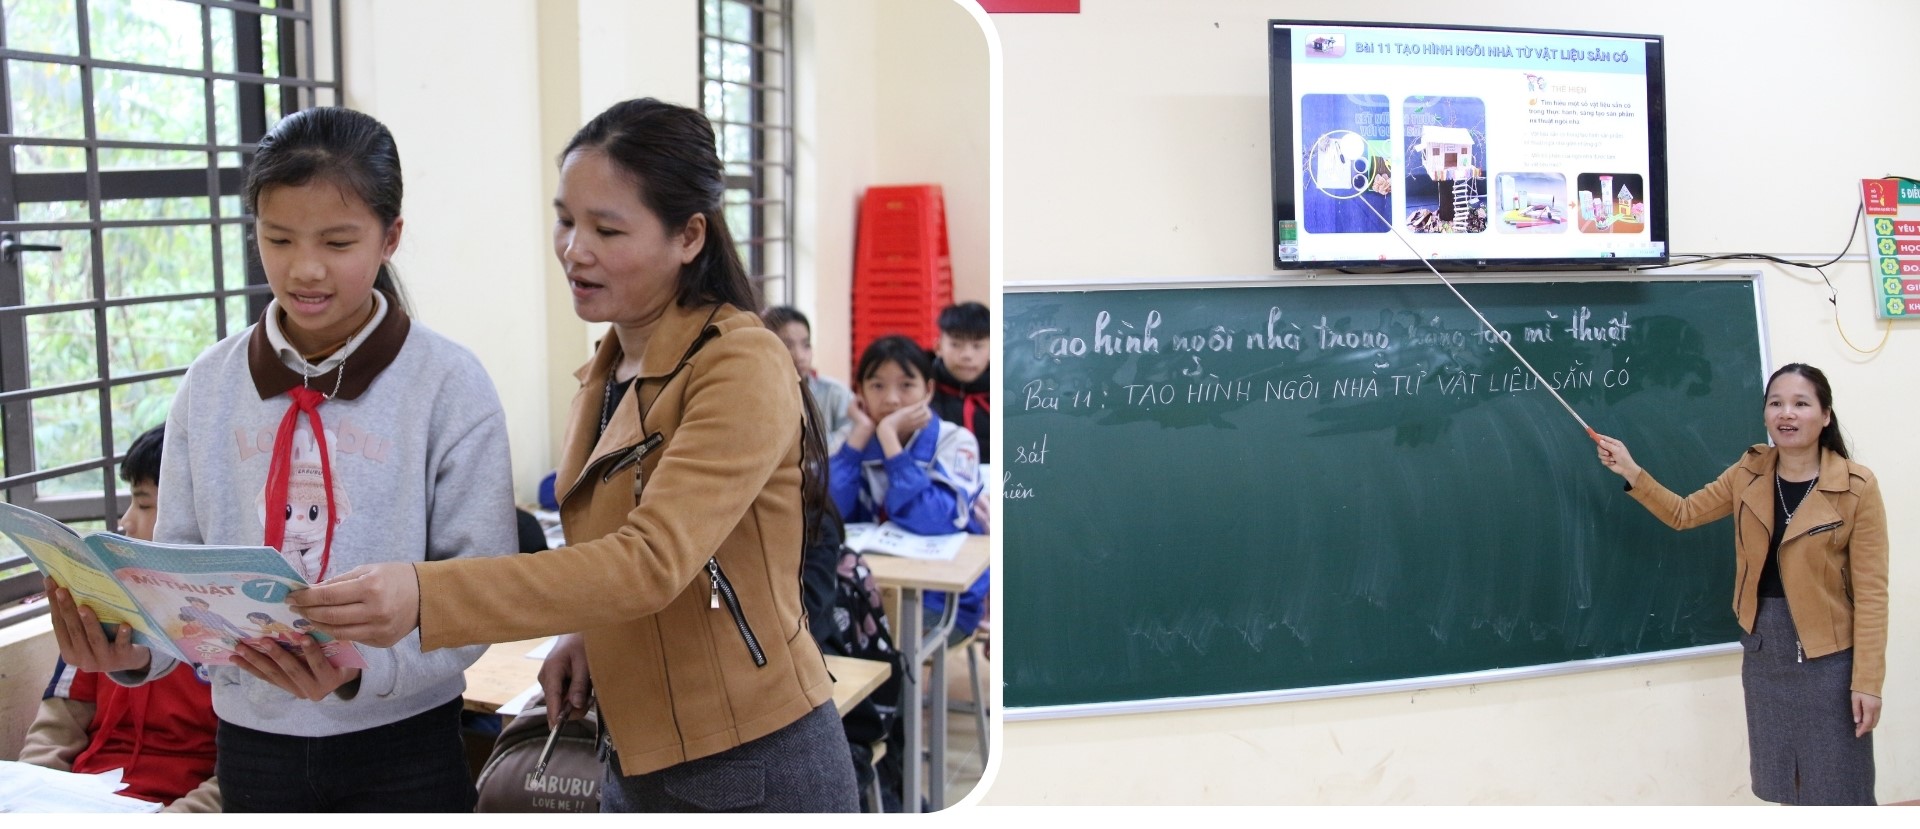 Labubu
LABUBU
MĨ THUẬT 7
LABUBU
LOVE ME !!
Bài 11 TẠO HÌNH NGÔI NHÀ TỪ VẬT LIỆU SẴN CÓ
THỂ HIỆN
Tìm hiểu một số vật liệu sẵn có
trong thực hành, sáng tạo sản phẩm
mĩ thuật ngôi nhà
Tạo hình ngôi nhà trong sáng tạo mĩ thuật
Bài 11: TẠO HÌNH NGÔI NHÀ TỪ VẬT LIỆU SẴN CÓ
sát
hiện
5 ĐIỀU
YÊU T
HỌC
ĐO
GI
KH